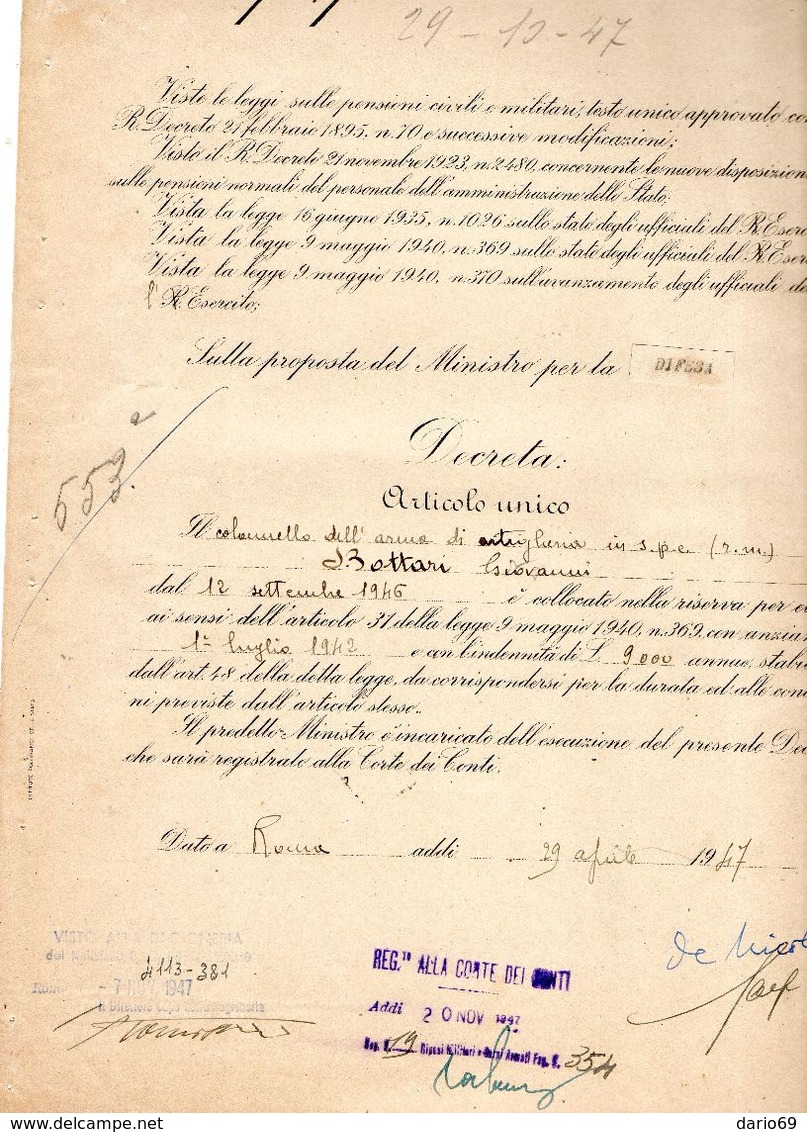 29-10-47
Viste le leggi sulle pensioni civili e militari, testo unico approvato con
R. Decreto 21 febbraio 1895, n. 70 e successive modificazioni;
Visto il R. Decreto 21 novembre 1923, n. 2480, concernente le nuove disposizioni
sulle pensioni normali del personale dell'amministrazione dello Stato;
Vista la legge 16 giugno 1935, n. 1026 sullo stato degli ufficiali del R. Eserc
Vista la legge 9 maggio 1940, n. 369 sullo stato degli ufficiali del R. Eserc
Vista la legge 9 maggio 1940, n. 370 sull'avanzamento degli ufficiali de
l' R. Esercito;
Sulla proposta del Ministro per la DIFESA
553
Decreta:
Articolo unico
Il colonnello dell'arma di artiglieria in s.p.e. (r.m.)
Bottari Giovanni
dal 12 settembre 1946 è collocato nella riserva per e
ai sensi dell'articolo 31 della legge 9 maggio 1940, n. 369, con anzian
1° luglio 1942 e con l'indennità di L. 9000 annue, stabi
dall'art. 48 della detta legge, da corrispondersi per la durata ed alle con
ni previste dall'articolo stesso.
Il predetto Ministro è incaricato dell'esecuzione del presente Dec
che sarà registrato alla Corte dei Conti.
Dato a Roma addì 29 aprile 1947
de Nicol
VISTO ALLA RAGIONERIA
4113-381
Roma - 7 1947
Il Direttore Capo
REG.TO ALLA CORTE DEI CONTI
Addì 20 NOV 1947
Reg. N. 19 Militari e Corpi Armati Fog. N. 354
dario69